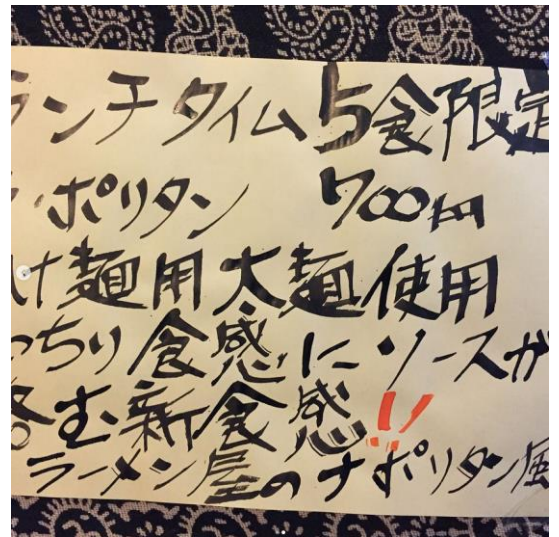 ランチタイム 5食限定
ポリタン 700円
け麺用太麺使用
っちり食感にソースが
絡む新食感!!
ラーメン屋のナポリタン風